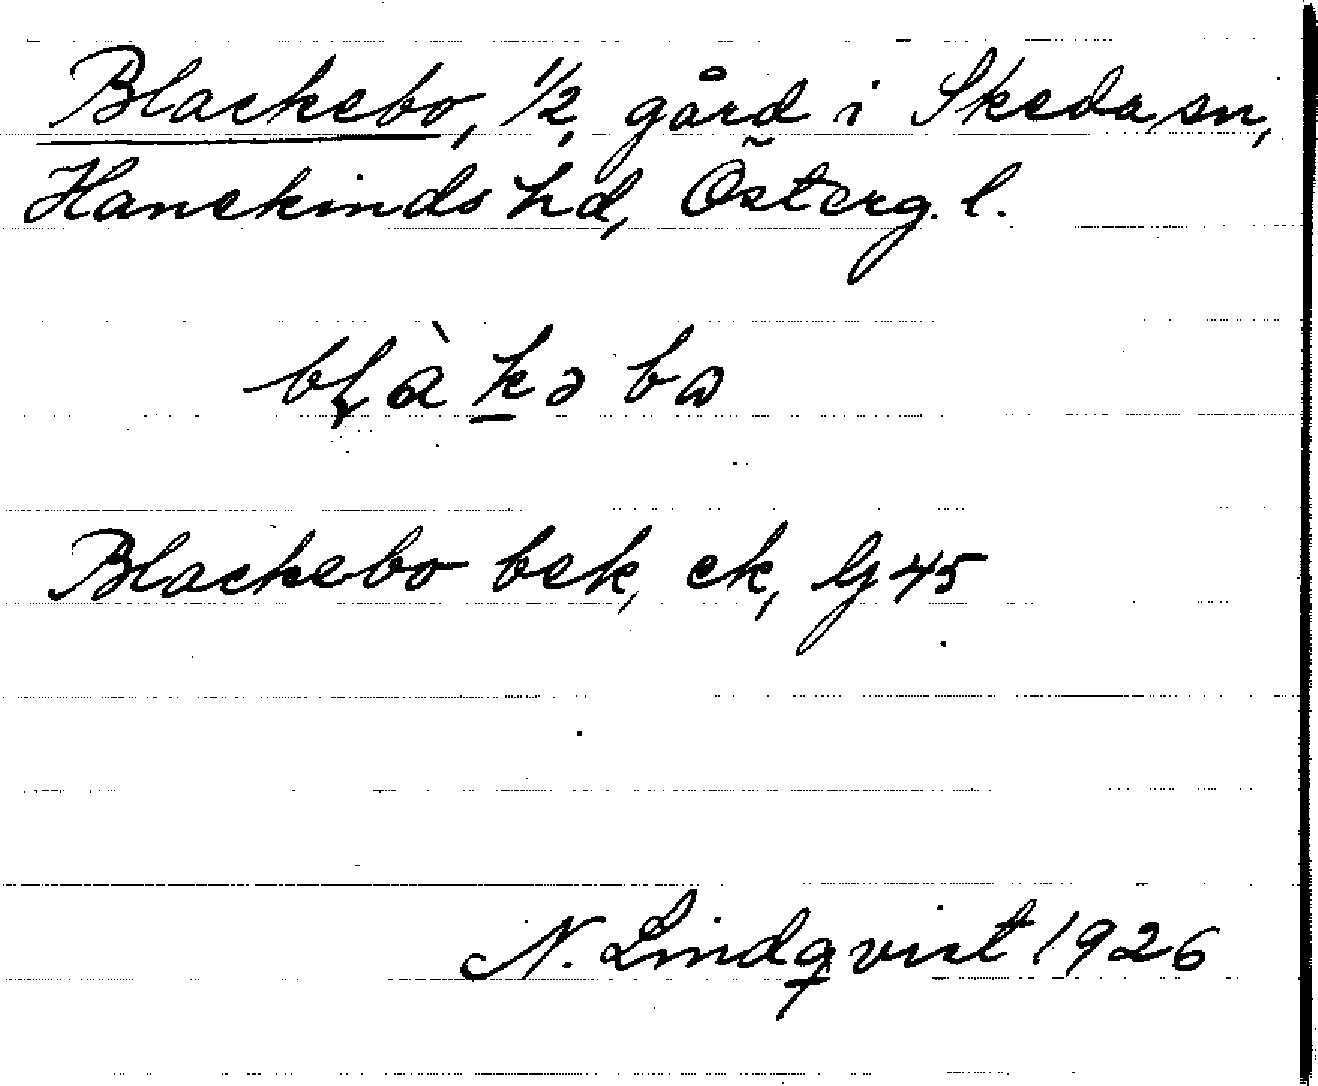 Blackebo, 1/2 gård i Skeda sn,
Hanekinds hd, Österg. l.
bḷàk̲əbɷ
Blackebo bek, ek, G 45
N. Lindqvist 1926